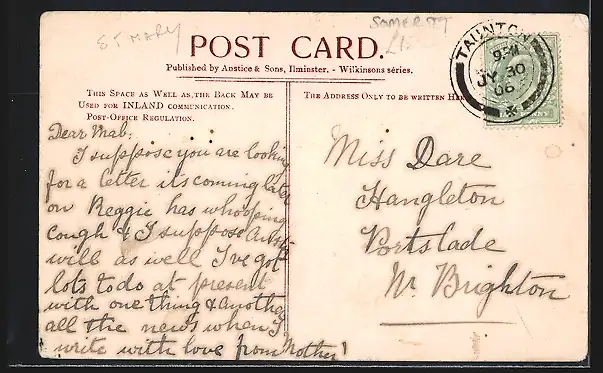 ST MARY
SOMERSET
£15
POST CARD.
Published by Anstice & Sons, Ilminster. - Wilkinsons series.
THIS SPACE AS WELL AS THE BACK MAY BE
USED FOR INLAND COMMUNICATION.
POST-OFFICE REGULATION.
THE ADDRESS ONLY TO BE WRITTEN HERE
TAUNTON
JY 30
06
Dear Mab:
I suppose you are looking
for a letter its coming later
on Reggie has whooping
cough & I suppose
will as well I've got
lots to do at present
with one thing & another
all the news when I
write with love from Mother
Miss Dare
Hangleton
Portslade
Nr. Brighton